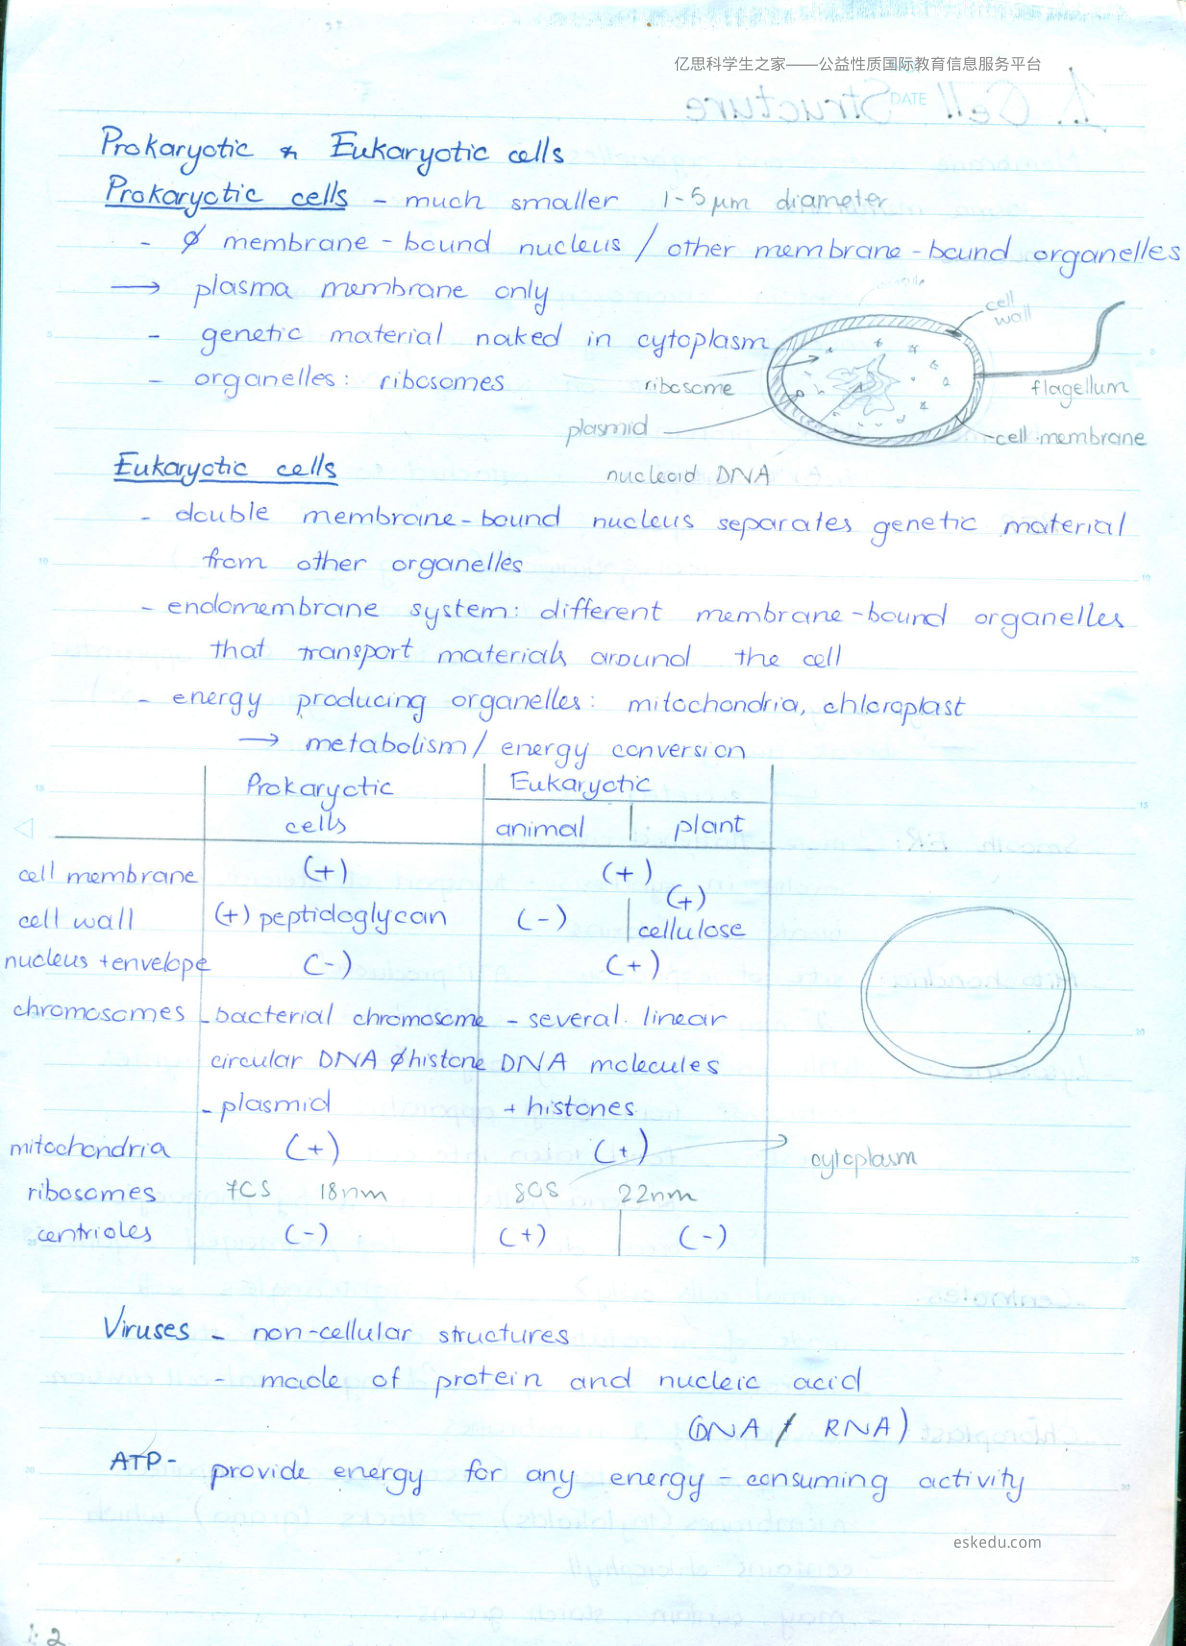 亿思科学生之家——公益性质国际教育信息服务平台
DATE
Prokaryotic & Eukaryotic cells
Prokaryotic cells - much smaller 1-5 μm diameter
- ∅ membrane-bound nucleus / other membrane-bound organelles
→ plasma membrane only
- genetic material naked in cytoplasm
- organelles: ribosomes
cell wall
ribosome
flagellum
plasmid
cell membrane
nucleoid DNA
Eukaryotic cells
- double membrane-bound nucleus separates genetic material
from other organelles
- endomembrane system: different membrane-bound organelles
that transport materials around the cell
- energy producing organelles: mitochondria, chloroplast
→ metabolism / energy conversion
Prokaryotic cells | Eukaryotic
animal | plant
cell membrane (+) (+)
cell wall (+) peptidoglycan (-) | (+) cellulose
nucleus + envelope (-) (+)
chromosomes - bacterial chromosome - several linear
circular DNA ∅ histone DNA molecules
- plasmid + histones
mitochondria (+) (+)
cytoplasm
ribosomes 70S 18nm 80S 22nm
centrioles (-) (+) | (-)
Viruses - non-cellular structures
- made of protein and nucleic acid
(DNA / RNA)
ATP - provide energy for any energy-consuming activity
eskedu.com
1:2